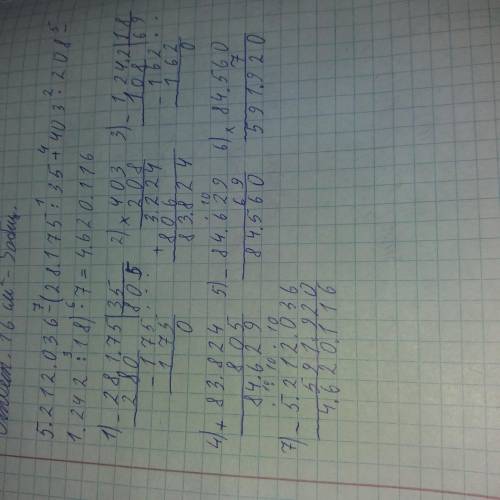 Ответ. 16 см² -
5.212.036-(28175:35+403:208-
1.242:18)·7=4.620.116
1) - 28.1.75|35
280 805
- 175
175
0
2) × 403
208
+ 3.224
806
83.824
3) - 1.24.2|18
108 69
- 162
162
0
4) + 83.824
805
84.629
5) - 84.629
69
84.560
6) × 84.560
7
591.920
7) - 5.212.036
591.920
4.620.116